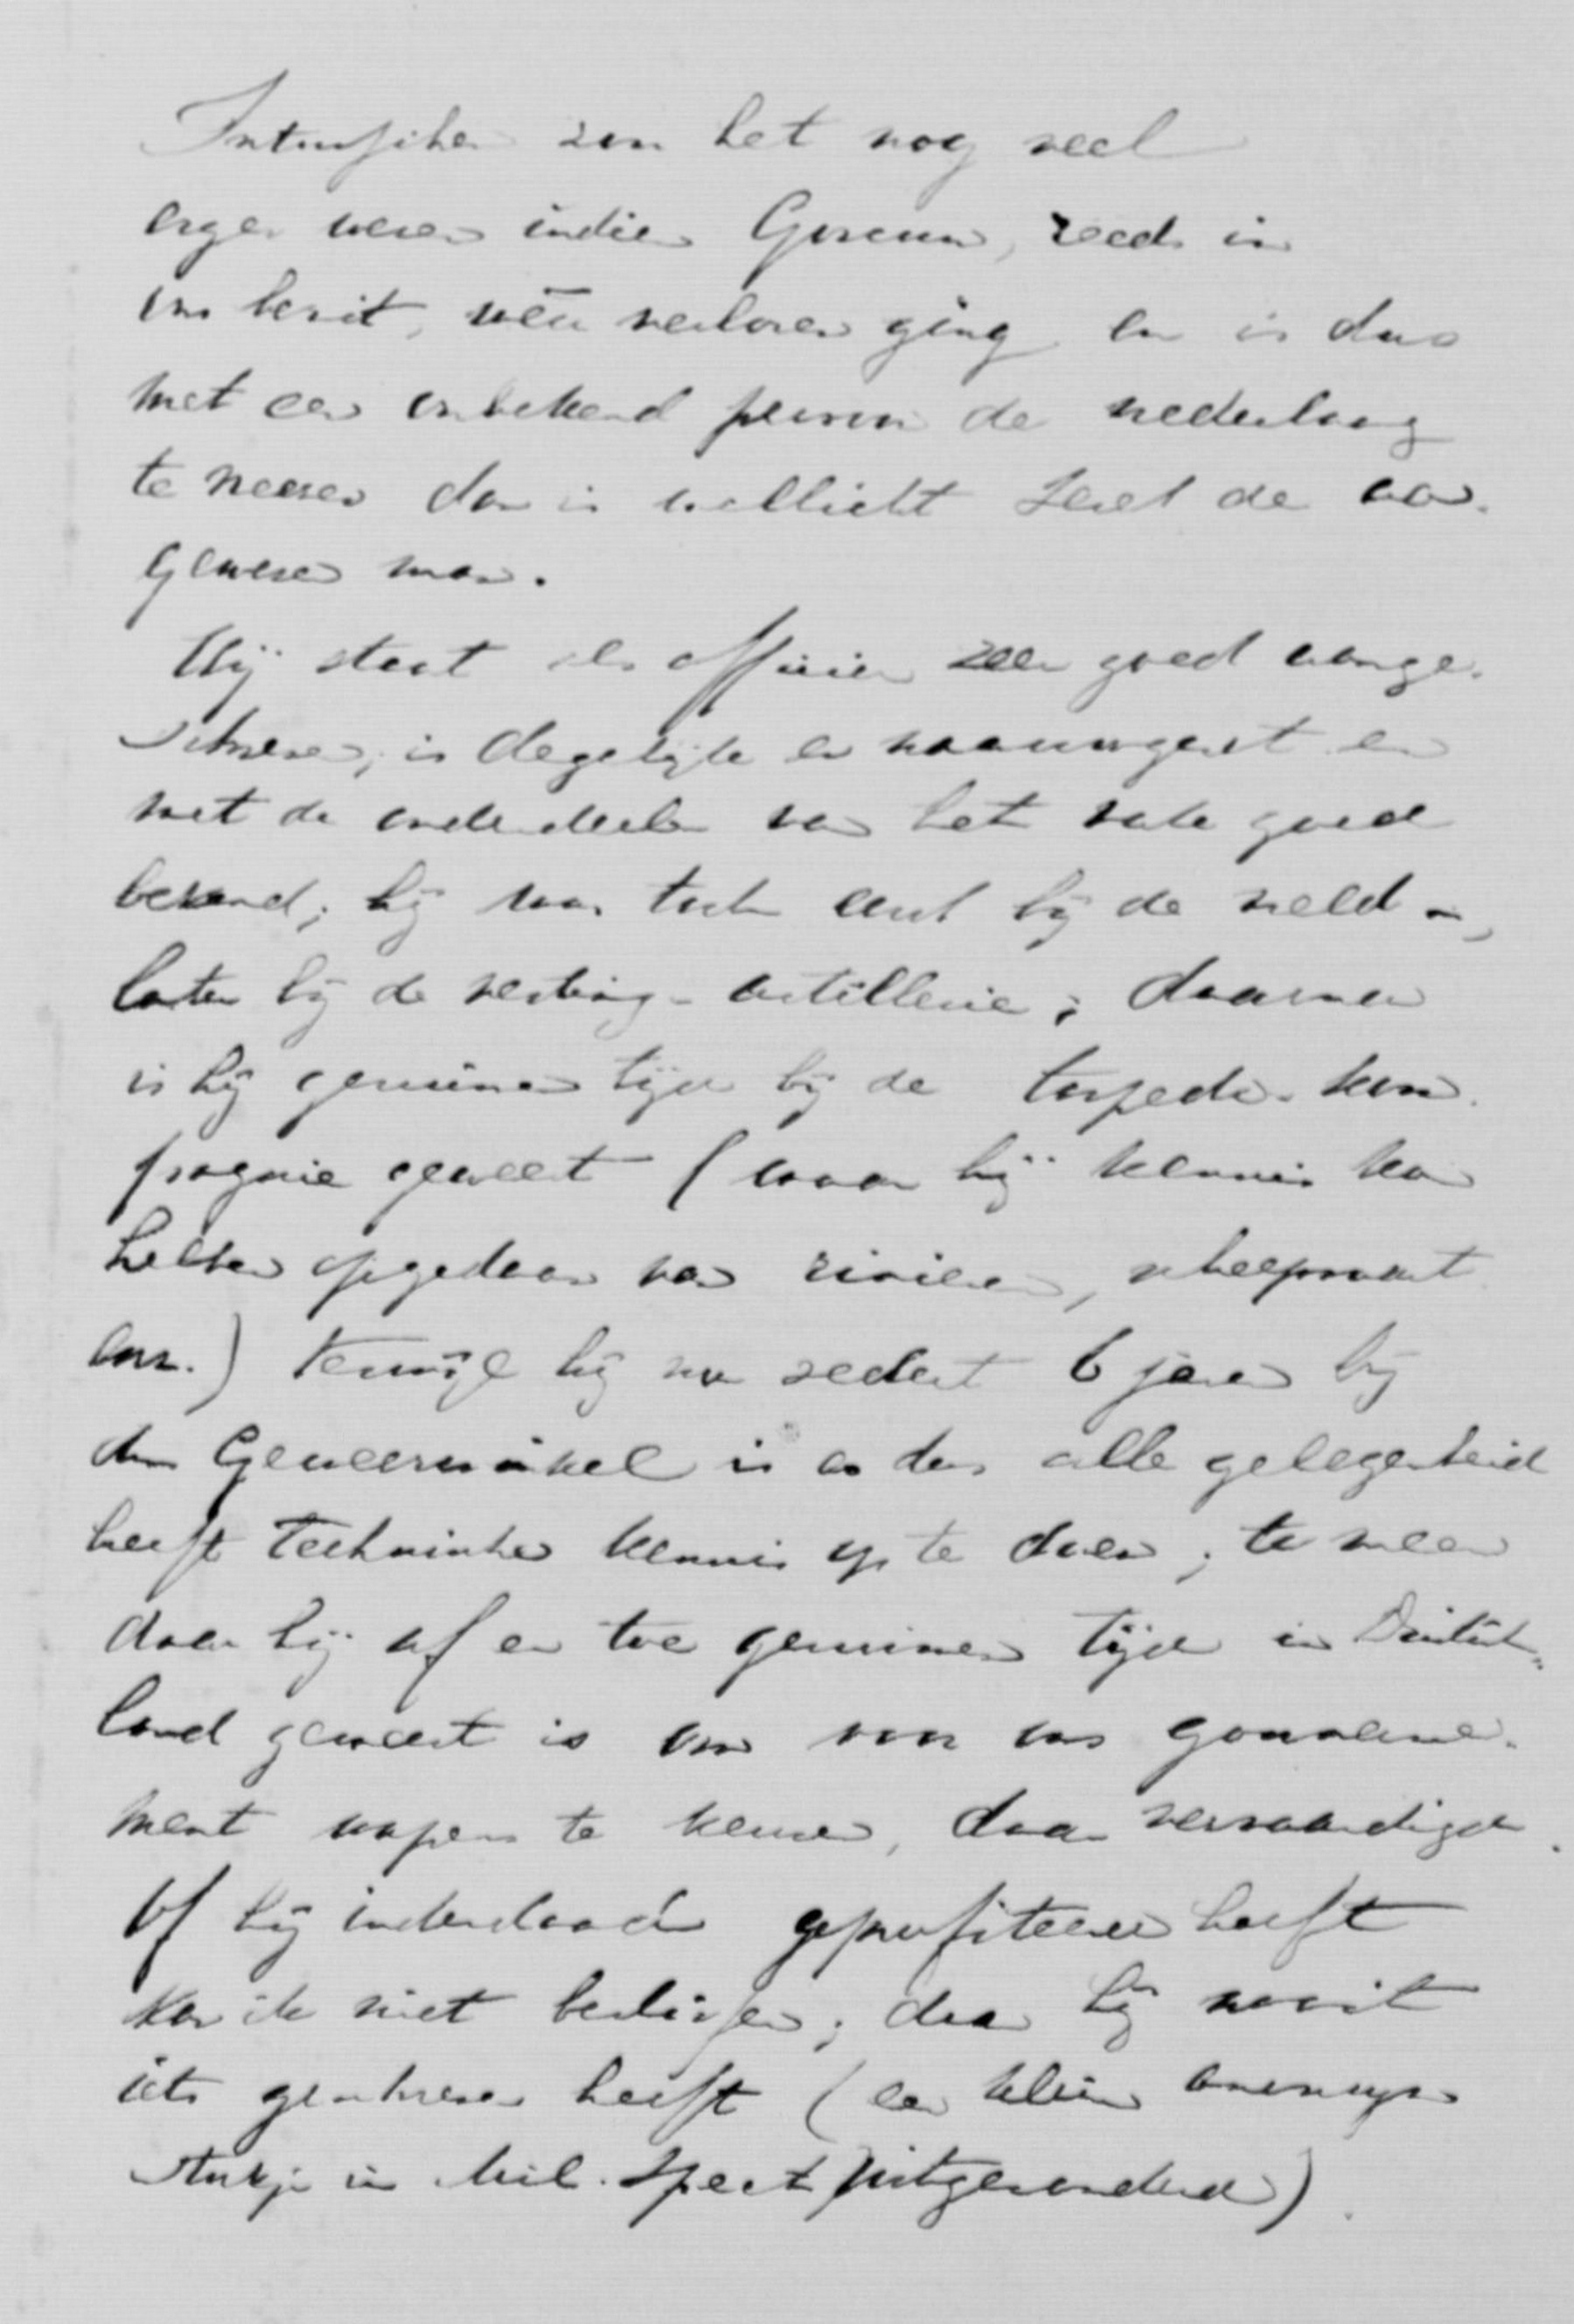 Intusschen zou het nog veel
erger wezen indien Goreum, reeds in
ons bezit, wêer verloren ging en is dus
met een onbekend persoon de nederlaag
te vreezen dan is wellicht Seret de aan-
gewezen man.
Hij staat als officier zeer goed aange-
schreven, is degelijk en nauwgezet en
met de onderdeelen van het vak goed
bekend; hij was toch eerst bij de veld-,
later bij de vesting-artillerie; daarna
is hij geruimen tijd bij de torpedo-kom-
pagnie geweest (waar hij kennis kan
hebben opgedaan van rivieren, scheepvaart
enz.) terwijl hij nu sedert 6 jaren bij
den Geweerwinkel is en dus alle gelegenheid
heeft technische kennis op te doen; te meer
daar hij af en toe geruimen tijd in Duitsch-
land geweest is om voor ons gouverne-
ment wapens te keuren, daar vervaardigd.
Of hij inderdaad geprofiteerd heeft
kan ik niet beslissen; daar hij nooit
iets geschreven heeft (een klein anonym
stukje in Mil. Spect uitgezonderd).